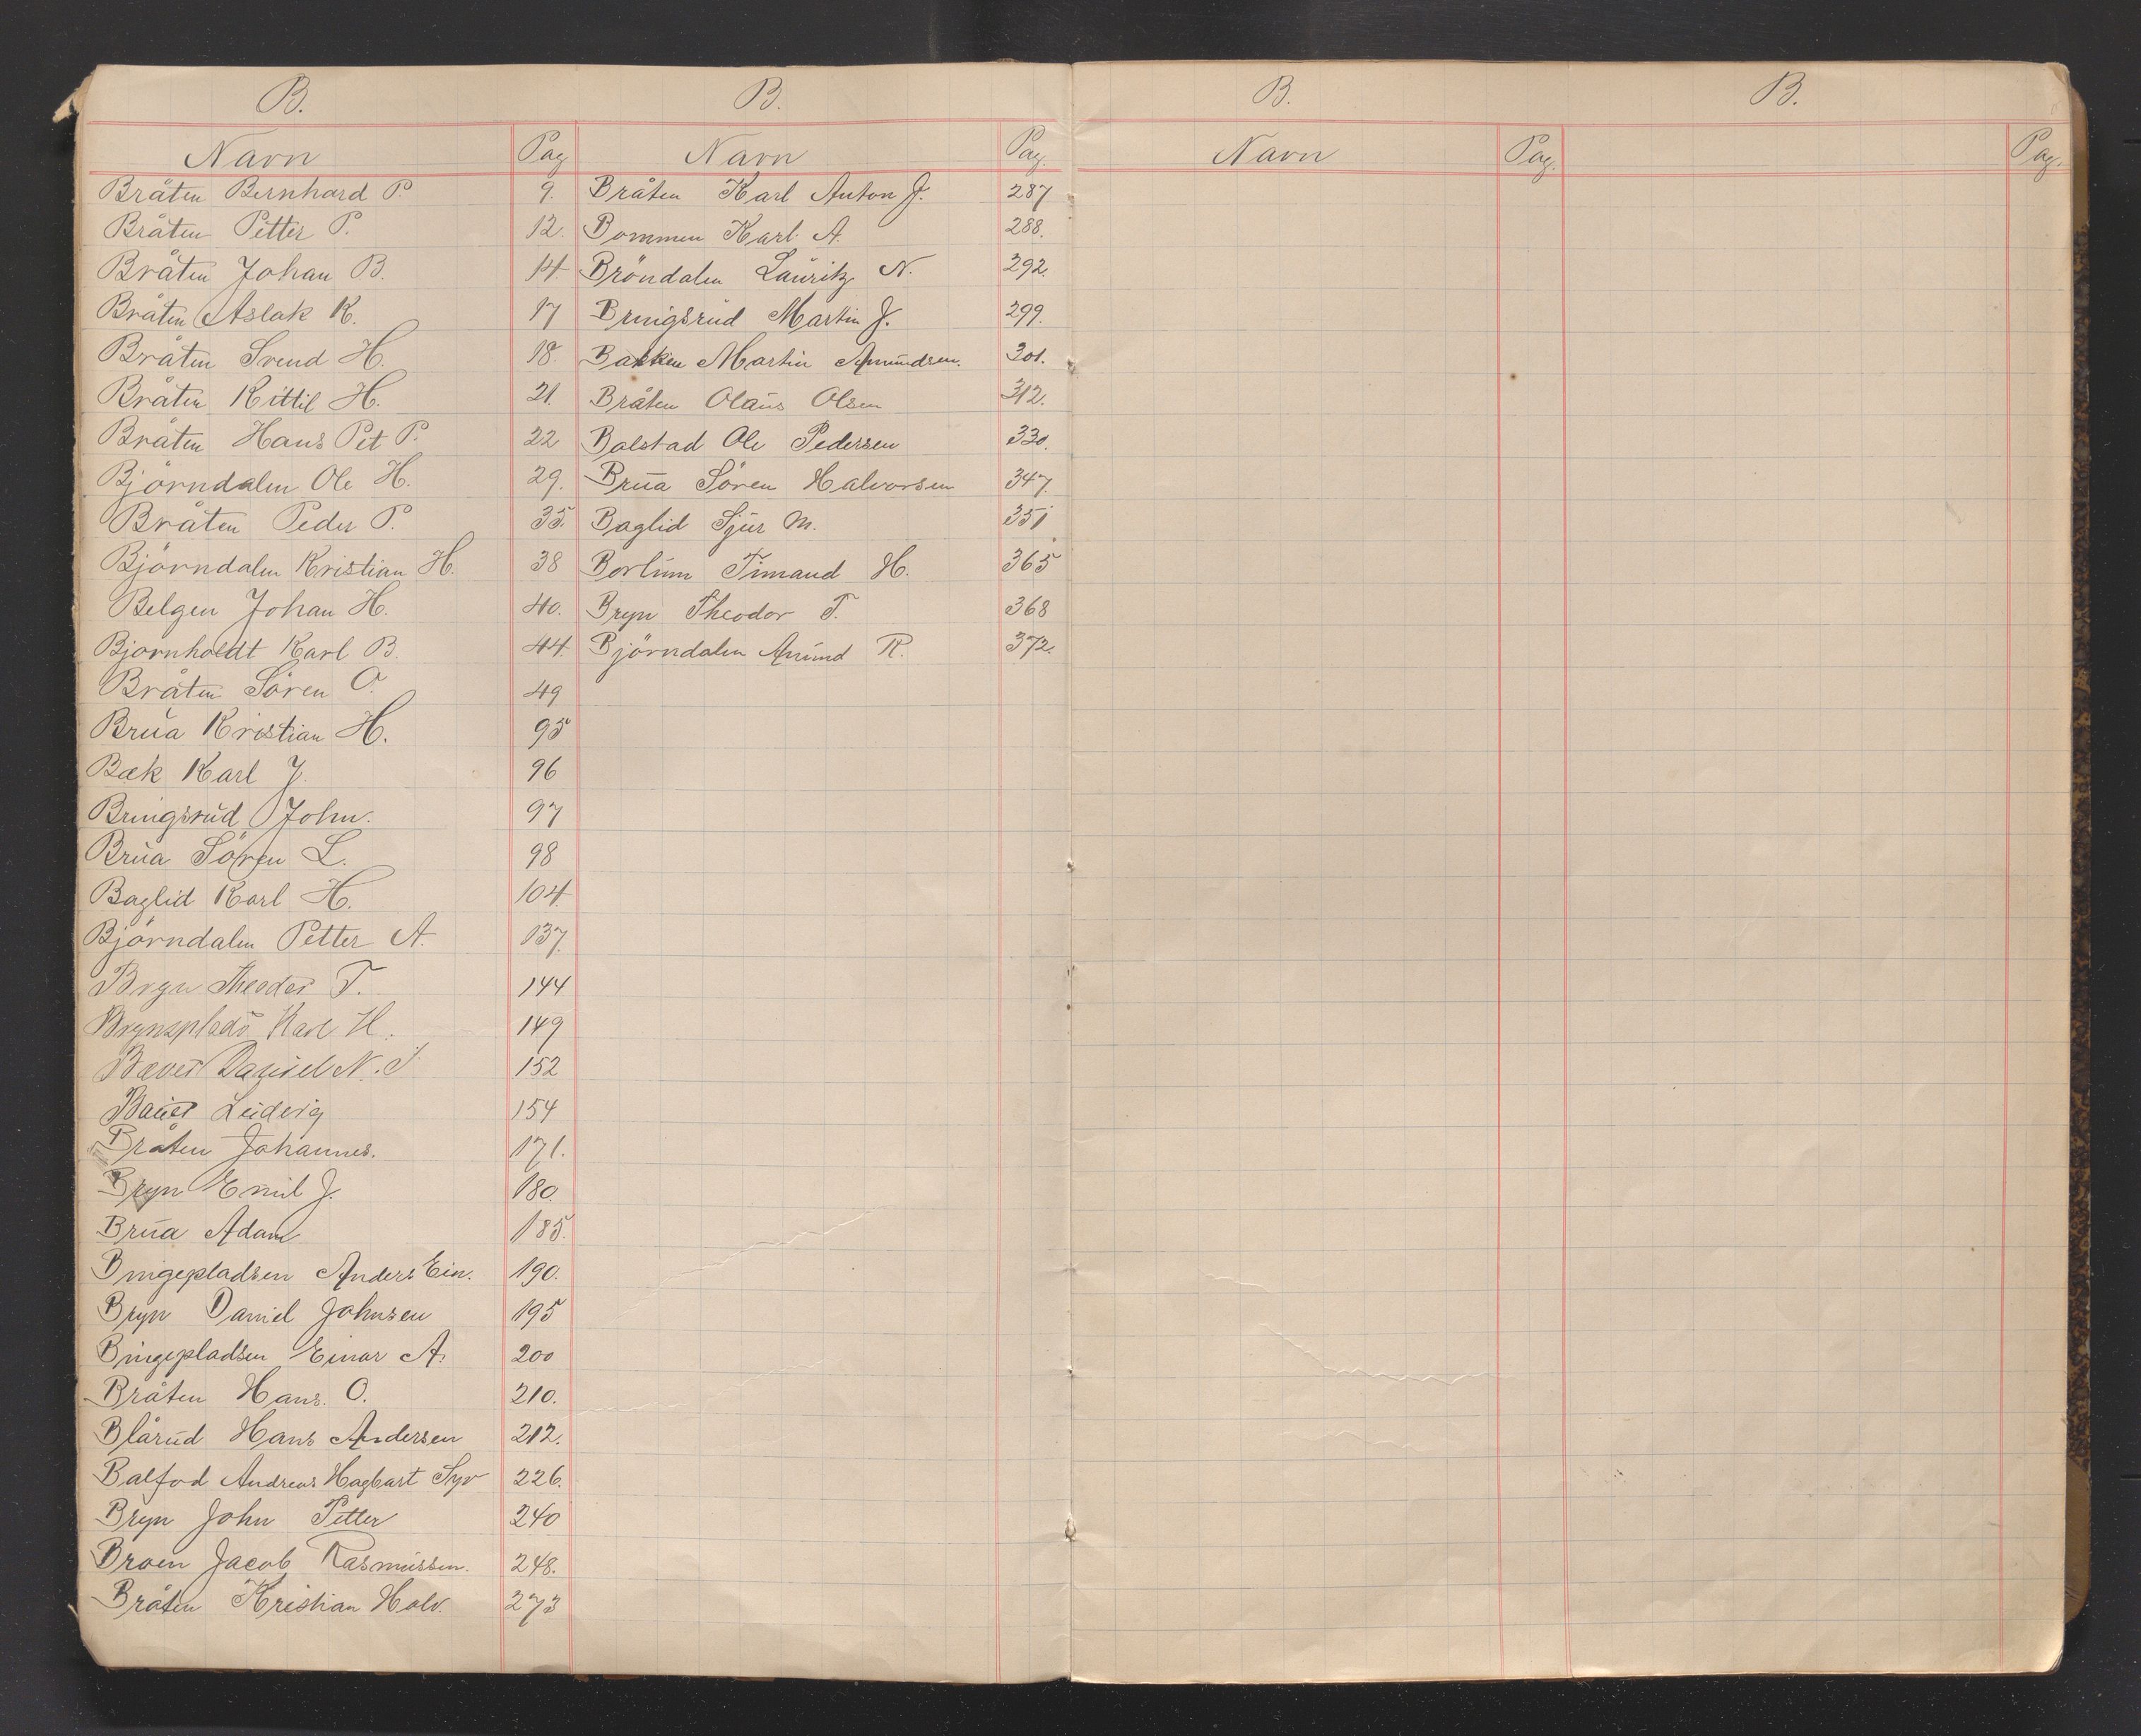 B.
Navn Pag
Bråten Bernhard P. 9.
Bråten Petter P. 12.
Bråten Johan B. 14.
Bråten Aslak K. 17
Bråten Svend H. 18.
Bråten Kittil H. 21.
Bråten Hans Pet P. 22
Björndalen Ole H. 29.
Bråten Peder P. 35.
Björndalen Kristian H. 38
Belgen Johan H. 40.
Bjornholdt Karl B. 44.
Bråten Sören O. 49
Brŭa Kristian H. 95
Bæk Karl J. 96
Bringsrŭd John. 97
Brŭa Sören L. 98
Baglid Karl H. 104.
Björndalen Petter A. 137.
Bryn Theodor T. 144
Brynsplads Karl H. 149
Bæver Daniel N. 152
Baŭer Lŭdvig 154
Bråten Johannes. 171.
Bryn Emil J. 180.
Brŭa Adam 185.
Bingepladsen Anders Ein. 190.
Bryn Daniel Johnsen 195
Bingepladsen Einar A. 200
Bråten Hans. O. 210.
Blårŭd Hans Andersen 212.
Balfod Andreas Hagbart Syv 226.
Bryn John Petter 240
Broen Jacob Rasmŭssen. 248.
Bråten Kristian Halv. 273
B.
Navn Pag.
Bråten Karl Anton J. 287
Bommen Karl A. 288.
Bröndalen Laŭritz N. 292.
Bringsrŭd Martin J. 299.
Bakken Martin Amŭndsen. 301.
Bråten Olaŭs Olsen 312.
Balstad Ole Pedersen 330.
Brŭa Sören Halvorsen 347.
Baglid Sjŭr M. 351
Borlŭm Timand H. 365
Bryn Theodor T. 368
Björndalen Amŭnd R. 372.
B.
Navn Pag.
B.
Pag.